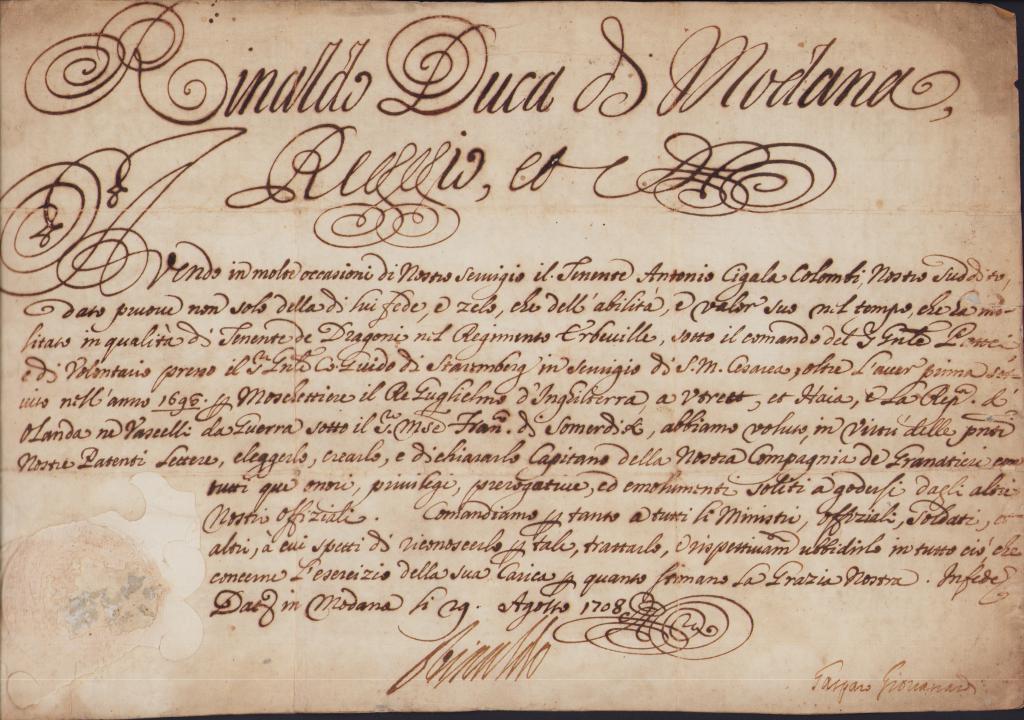 Rinaldo Duca di Modana,
Reggio, et c
Avendo in molte occasioni di Nostro servigio il Tenente Antonio Cigala Colombi, Nostro suddito,
dato pruove non solo della di lui fede, e zelo, che dell'abilità, e valor suo nel tempo, che da mi-
litato in qualità di Tenente de Dragoni nel Regimento Erbeville, sotto il comando del
e di Volontario presso il Co: Guido di Staremberg in servigio di S. M. Cesarea, oltre l'aver prima ser-
vito nell'anno 1695. Moschettiere il Re Guglielmo d'Inghilterra, a et Haia, e la Rep.a d'
Olanda ne Vascelli da Guerra sotto il Fran. di Somerdik, abbiamo voluto, in virtù delle pnti
Nostre Patenti Lettere, eleggerlo, crearlo, e dichiararlo Capitano della Nostra Compagnia de Granatieri con
tutti que onori, privilegi, prerogative, ed emolumenti soliti a godersi dagli altri
Nostri offiziali. Comandiamo p tanto a tutti li Ministri, offiziali, Soldati, et
altri, à cui spetti di riconoscerlo p tale, trattarlo, e rispettivam ubbidirlo in tutto ciò che
concerne l'esercizio della sua Carica p quanto stimano la Grazia Nostra. In fede
Dat in Modana li 29. Agosto 1708
Rinaldo
Gasparo Giovanardi